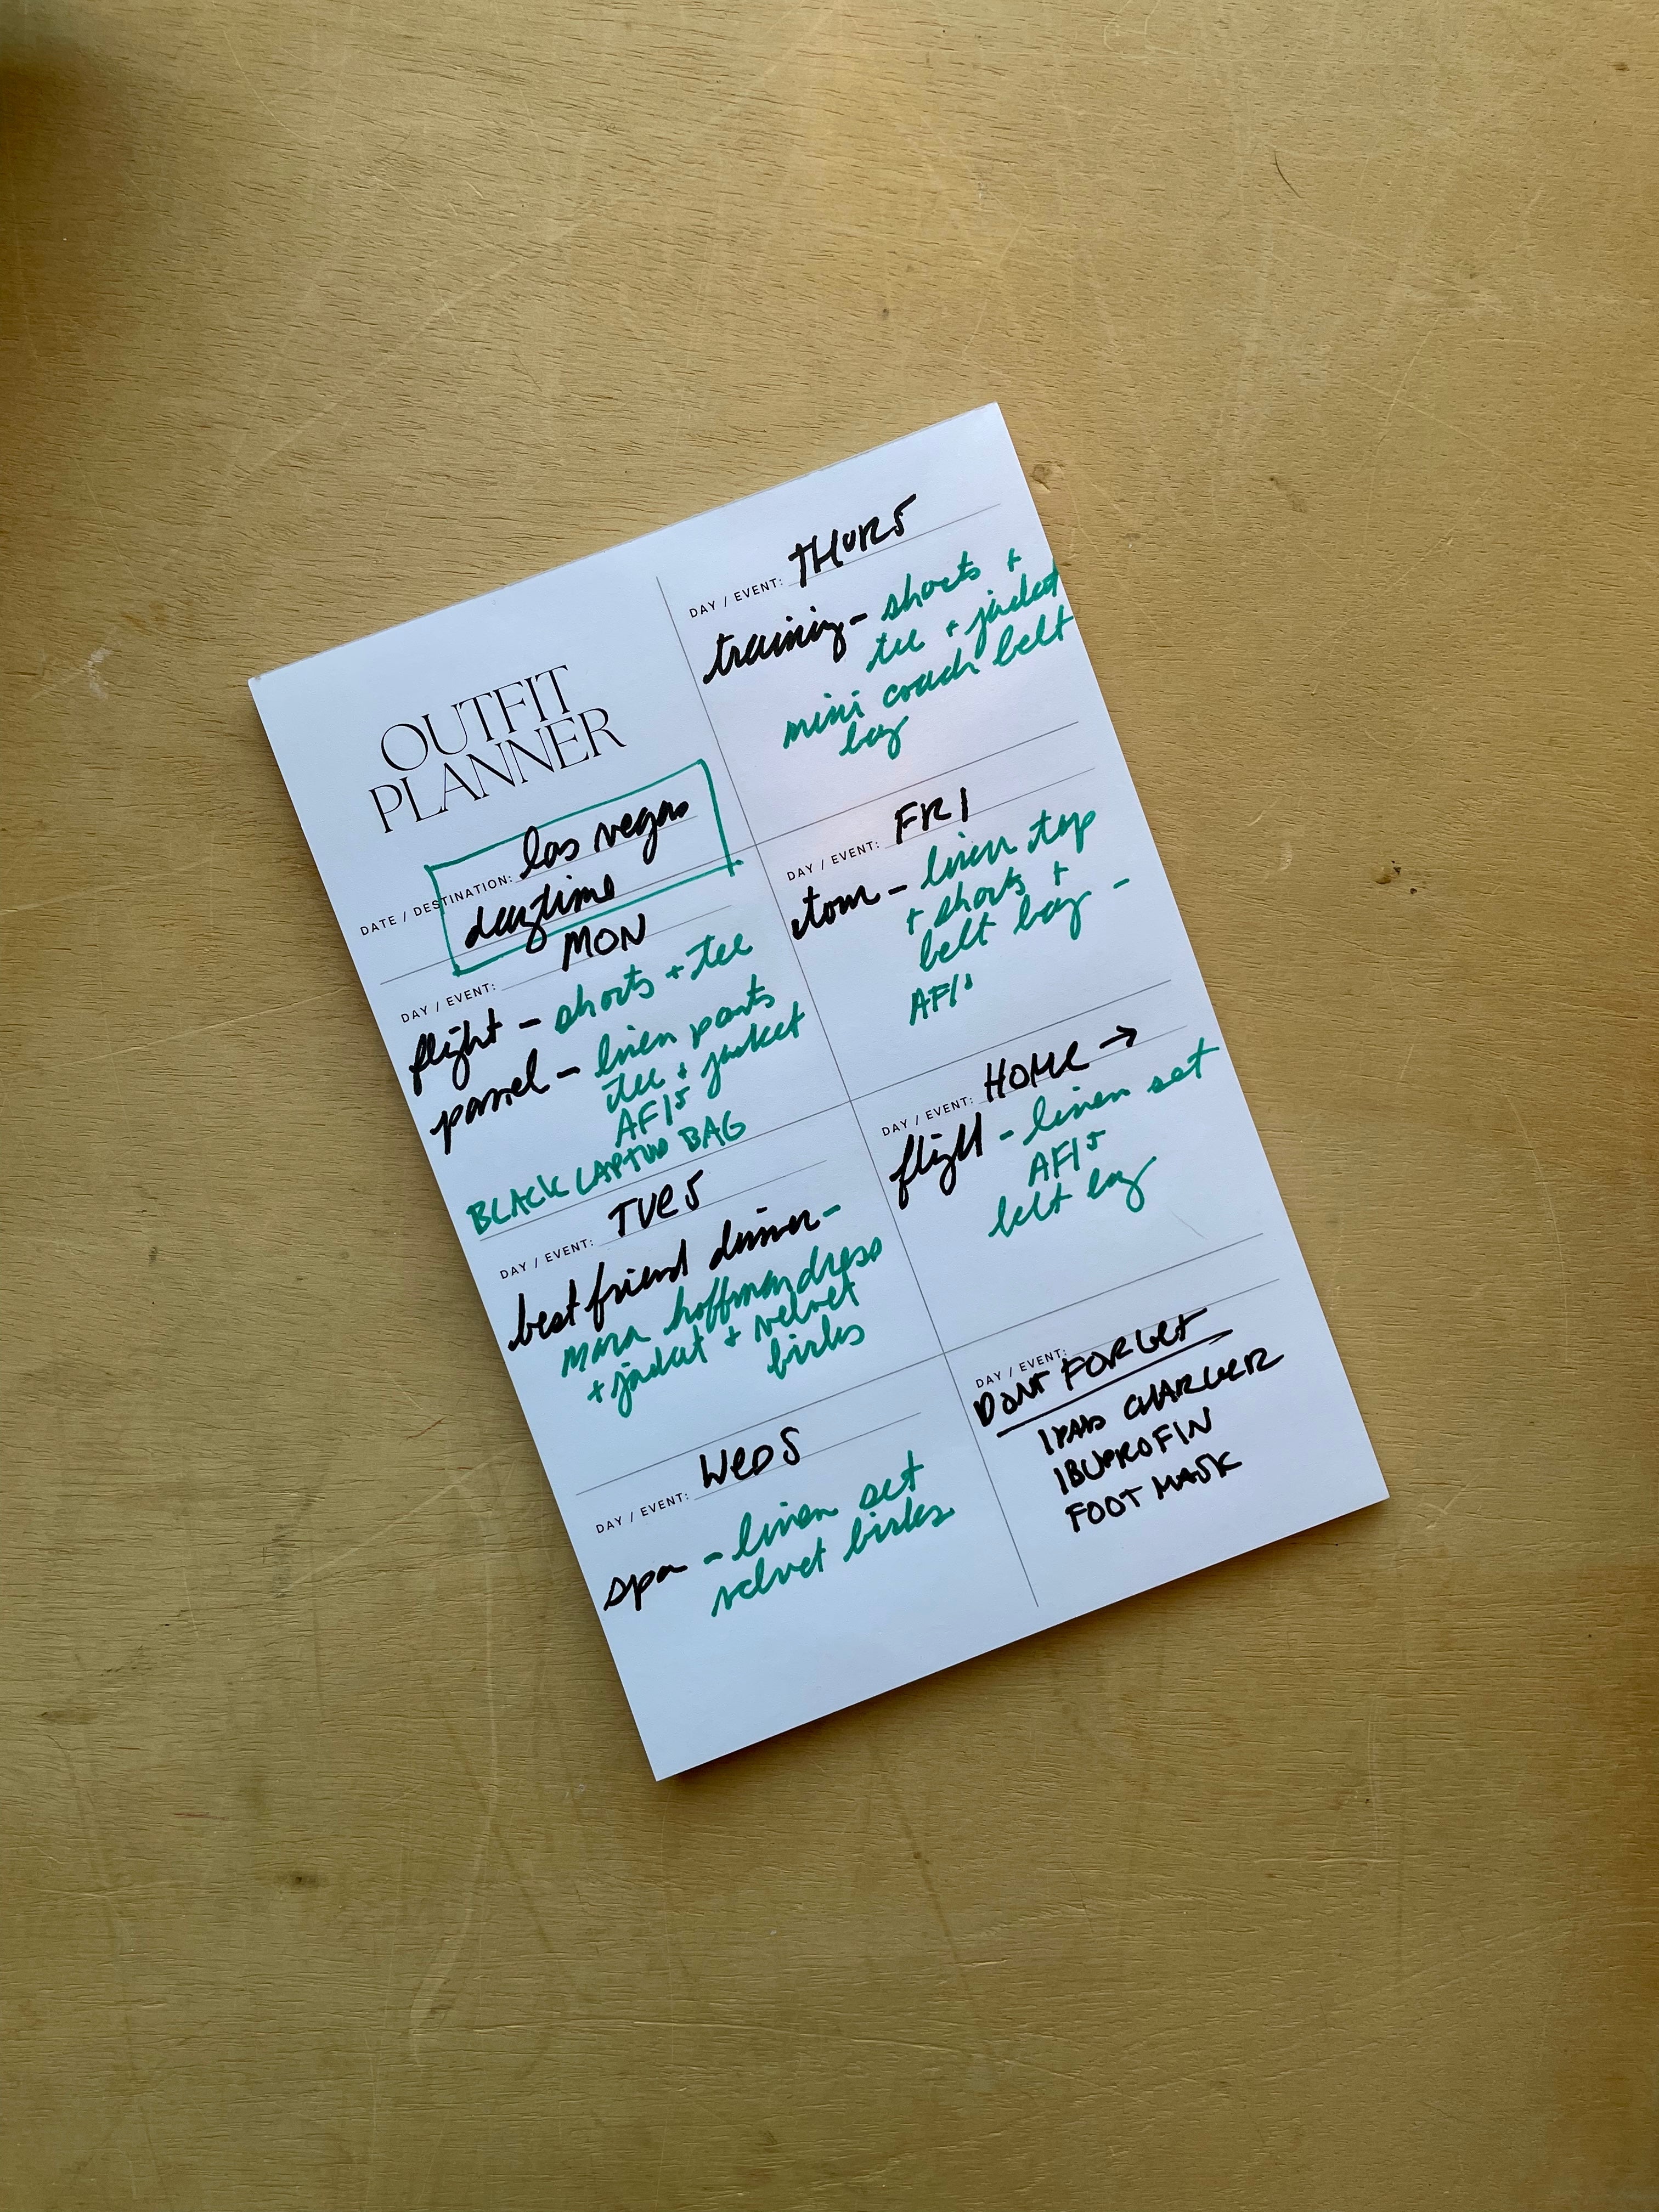 OUTFIT
PLANNER
DATE / DESTINATION: las vegas
daytime
DAY / EVENT: MON
flight - shorts + tee
panel - linen pants
tee + jacket
AF1s
BLACK LAPTOP BAG
DAY / EVENT: TUES
best friend dinner -
mara hoffman dress
+ jacket + velvet
birks
DAY / EVENT: WEDS
spa - linen set
velvet birks
DAY / EVENT: THURS
training - shorts +
tee + jacket
mini coach belt
bag
DAY / EVENT: FRI
tour - linen top
+ shorts +
belt bag -
AF1s
DAY / EVENT: HOME →
flight - linen set
AF1s
belt bag
DAY / EVENT:
DONT FORGET
IPAD CHARGER
IBUPROFIN
FOOT MASK